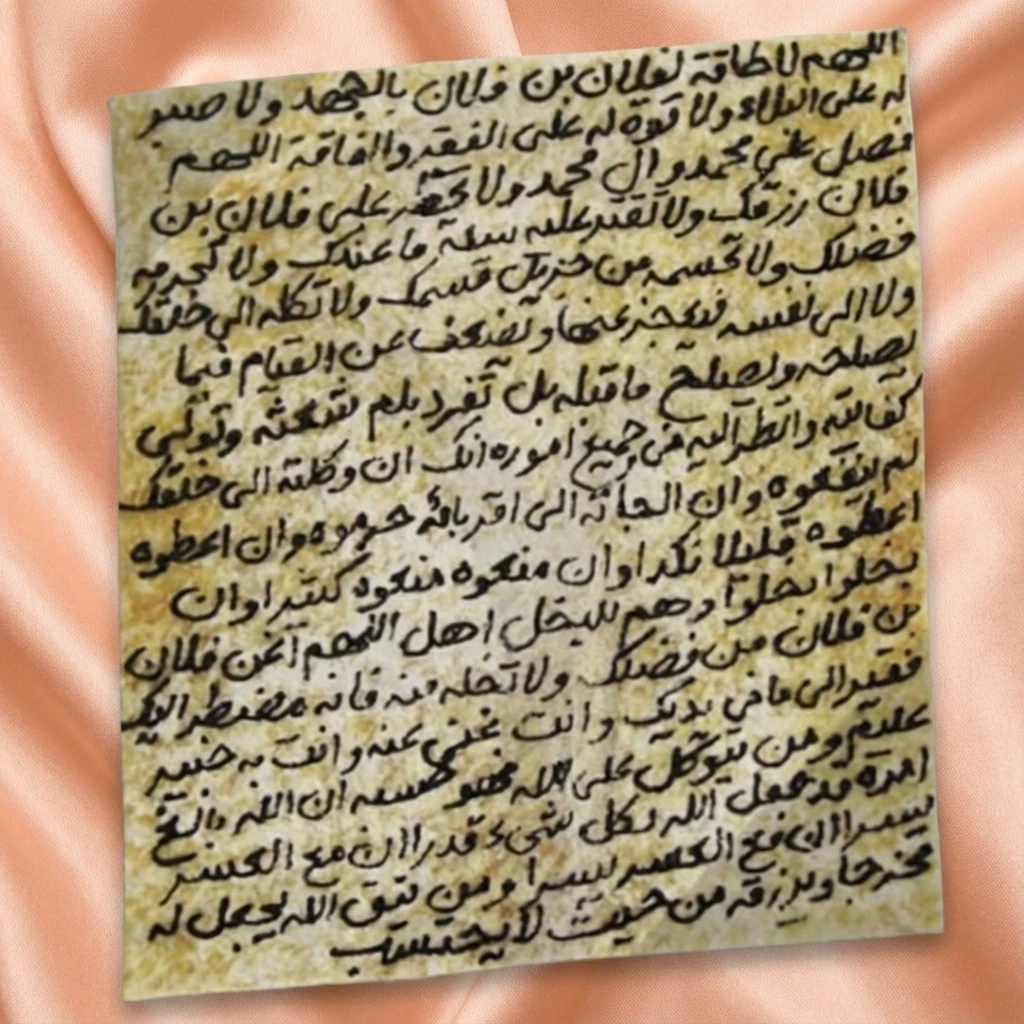 اللهم لا طاقة لفلان بن فلان بالجهد ولا صبر
له على البلاء ولا قوة له على الفقر والفاقة اللهم
فصل على محمد وال محمد ولا تحظر على فلان بن
فلان رزقك ولا تقتر عليه سعة ما عندك ولا تحرمه
فضلك ولا تحسمه من جزيل قسمك ولا تكله الى خلقك
ولا الى نفسه فيعجز عنها وتضعف عن القيام فيما
يصلحه ويصلح ما قبله بل تفرد بلم شعثه وتولى
كفايته وانظر اليه في جميع اموره انك ان وكلته الى خلقك
لم ينفعوه وان الجأته الى اقربائه حرموه وان اعطوه
اعطوه قليلا نكدا وان منعوه منعوه كثيرا وان
بخلوا بخلوا وهم للبخل اهل اللهم اغن فلان
بن فلان من فضلك ولا تخله منه فانه مضطر اليك
فقير الى ما في يديك وانت غني عنه وانت به خبير
عليم ومن يتوكل على الله فهو حسبه ان الله بالغ
امره قد جعل الله لكل شيء قدرا ان مع العسر
يسرا ان مع العسر يسرا ومن يتق الله يجعل له
مخرجا ويرزقه من حيث لا يحتسب